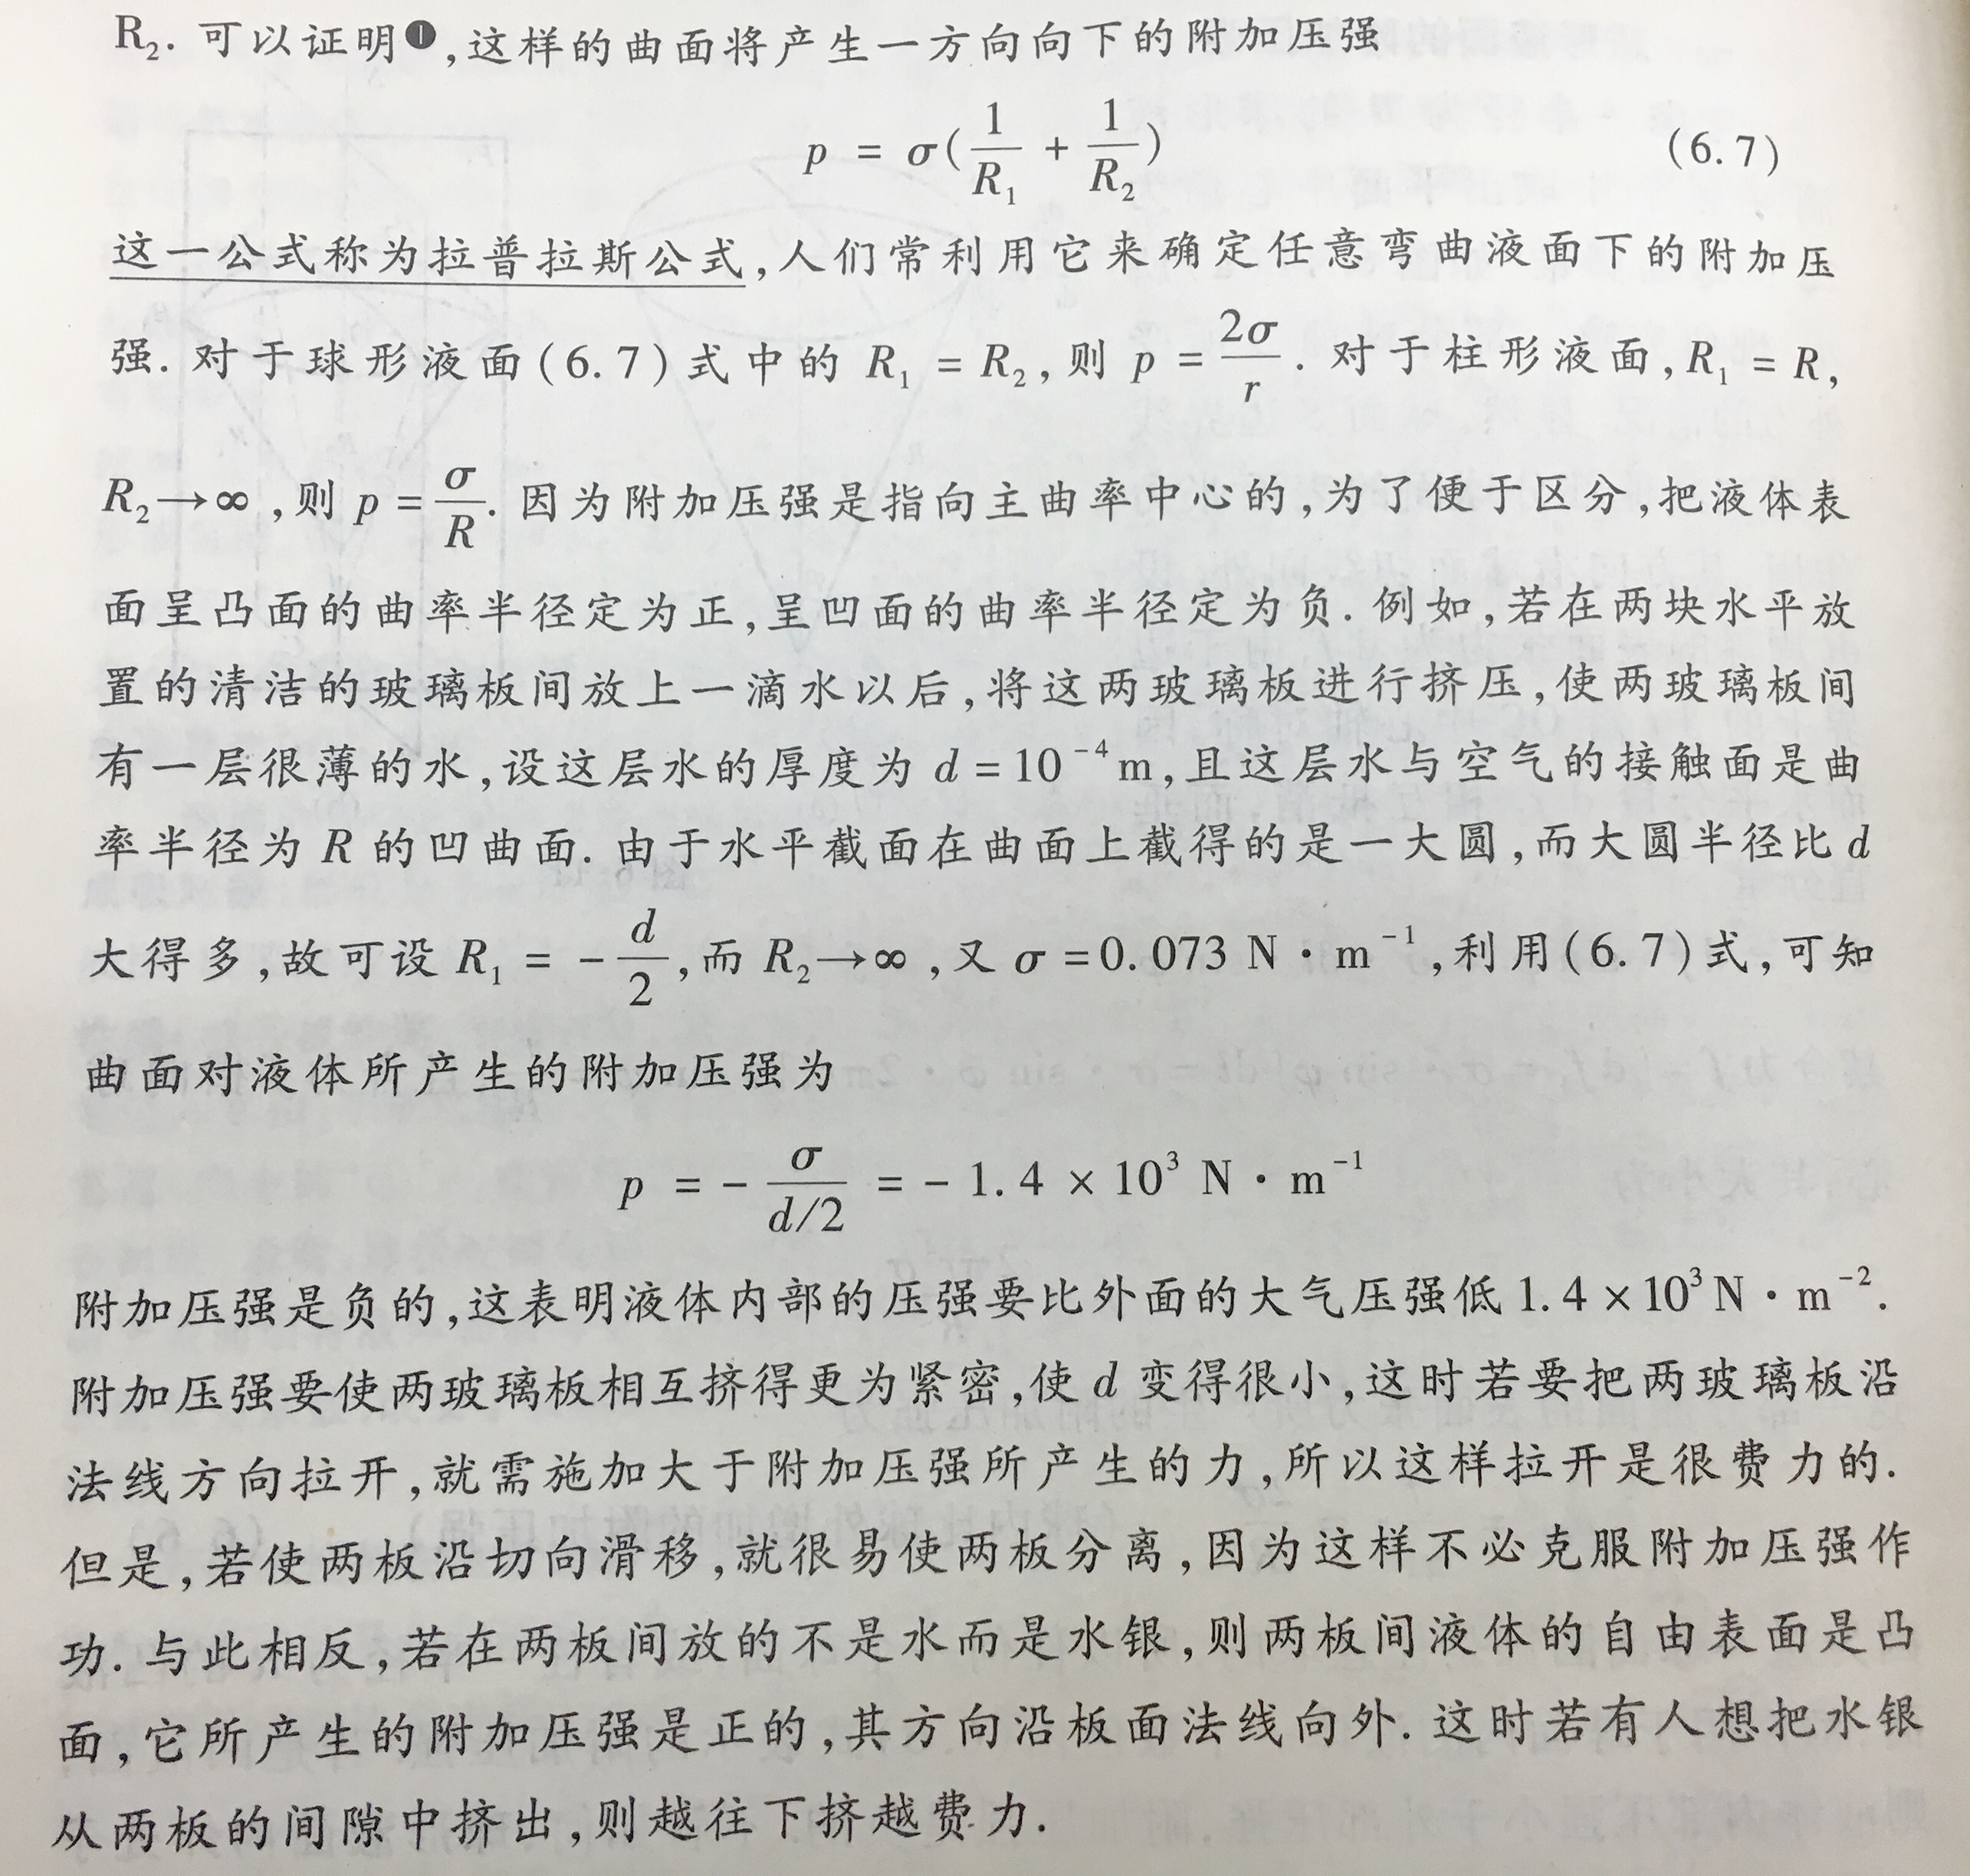 R₂. 可以证明❶,这样的曲面将产生一方向向下的附加压强
p = σ(1/R₁ + 1/R₂) (6.7)
这一公式称为拉普拉斯公式,人们常利用它来确定任意弯曲液面下的附加压
强. 对于球形液面(6.7)式中的 R₁ = R₂,则 p = 2σ/r. 对于柱形液面,R₁ = R,
R₂→∞,则 p = σ/R. 因为附加压强是指向主曲率中心的,为了便于区分,把液体表
面呈凸面的曲率半径定为正,呈凹面的曲率半径定为负. 例如,若在两块水平放
置的清洁的玻璃板间放上一滴水以后,将这两玻璃板进行挤压,使两玻璃板间
有一层很薄的水,设这层水的厚度为 d = 10⁻⁴m,且这层水与空气的接触面是曲
率半径为 R 的凹曲面. 由于水平截面在曲面上截得的是一大圆,而大圆半径比 d
大得多,故可设 R₁ = -d/2,而 R₂→∞,又 σ = 0.073 N·m⁻¹,利用(6.7)式,可知
曲面对液体所产生的附加压强为
p = - σ/(d/2) = - 1.4 × 10³ N·m⁻¹
附加压强是负的,这表明液体内部的压强要比外面的大气压强低 1.4 × 10³ N·m⁻².
附加压强要使两玻璃板相互挤得更为紧密,使 d 变得很小,这时若要把两玻璃板沿
法线方向拉开,就需施加大于附加压强所产生的力,所以这样拉开是很费力的.
但是,若使两板沿切向滑移,就很易使两板分离,因为这样不必克服附加压强作
功. 与此相反,若在两板间放的不是水而是水银,则两板间液体的自由表面是凸
面,它所产生的附加压强是正的,其方向沿板面法线向外. 这时若有人想把水银
从两板的间隙中挤出,则越往下挤越费力.